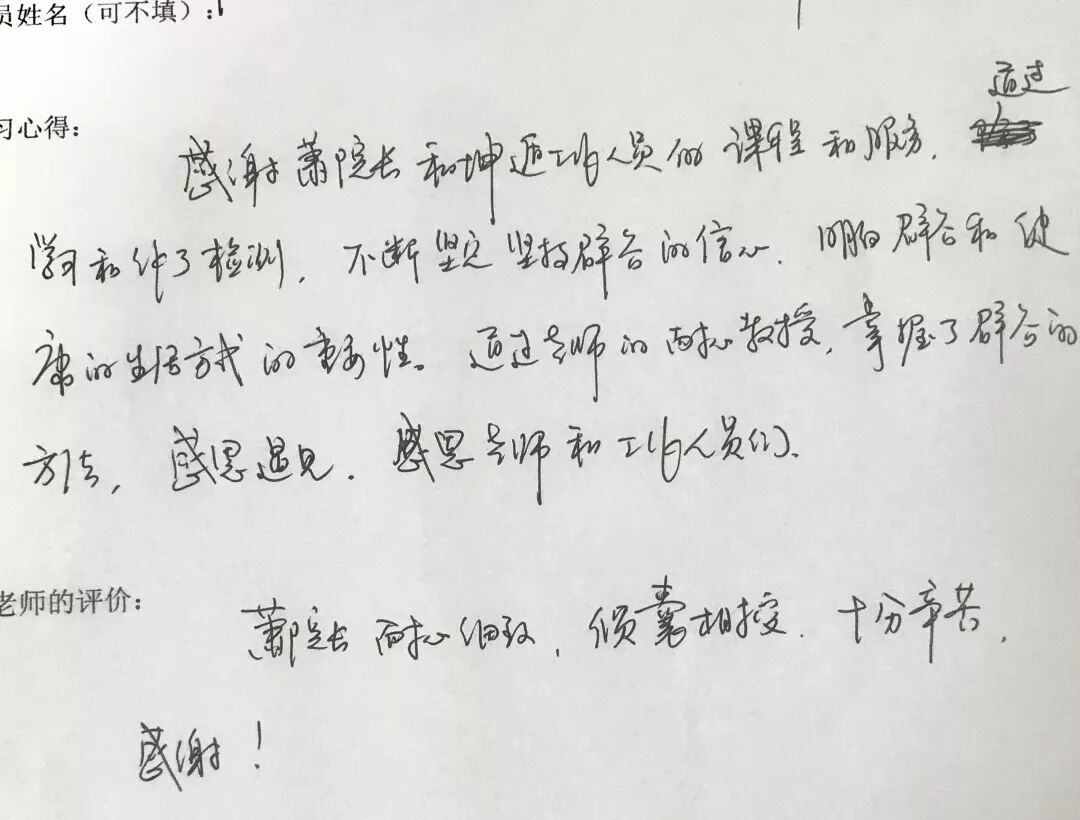 员姓名（可不填）：
通过
习心得：
感谢萧院长和坤通工作人员的课程和服务，
学习和做了检测，不断坚定坚持辟谷的信心，明白辟谷和健
康的生活方式的重要性。通过老师的耐心教授，掌握了辟谷的
方法，感恩遇见，感恩老师和工作人员们。
老师的评价：
萧院长耐心细致，倾囊相授，十分辛苦，
感谢！